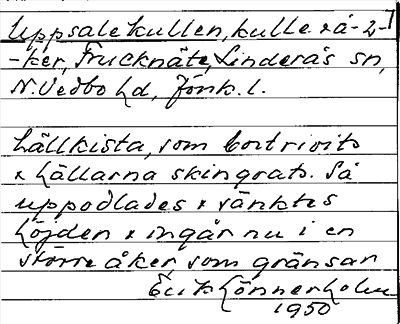 Uppsalekullen, kulle på å-
-ker, Frucknäte, Linderås sn,
N. Vedbo hd, Jönk. l.
hällkista, som bortrivits
x hällarna skingrats. Så
uppodlades x sänktes
höjden x ingår nu i en
större åker, som gränsar
Erik Lönnerholm
1950